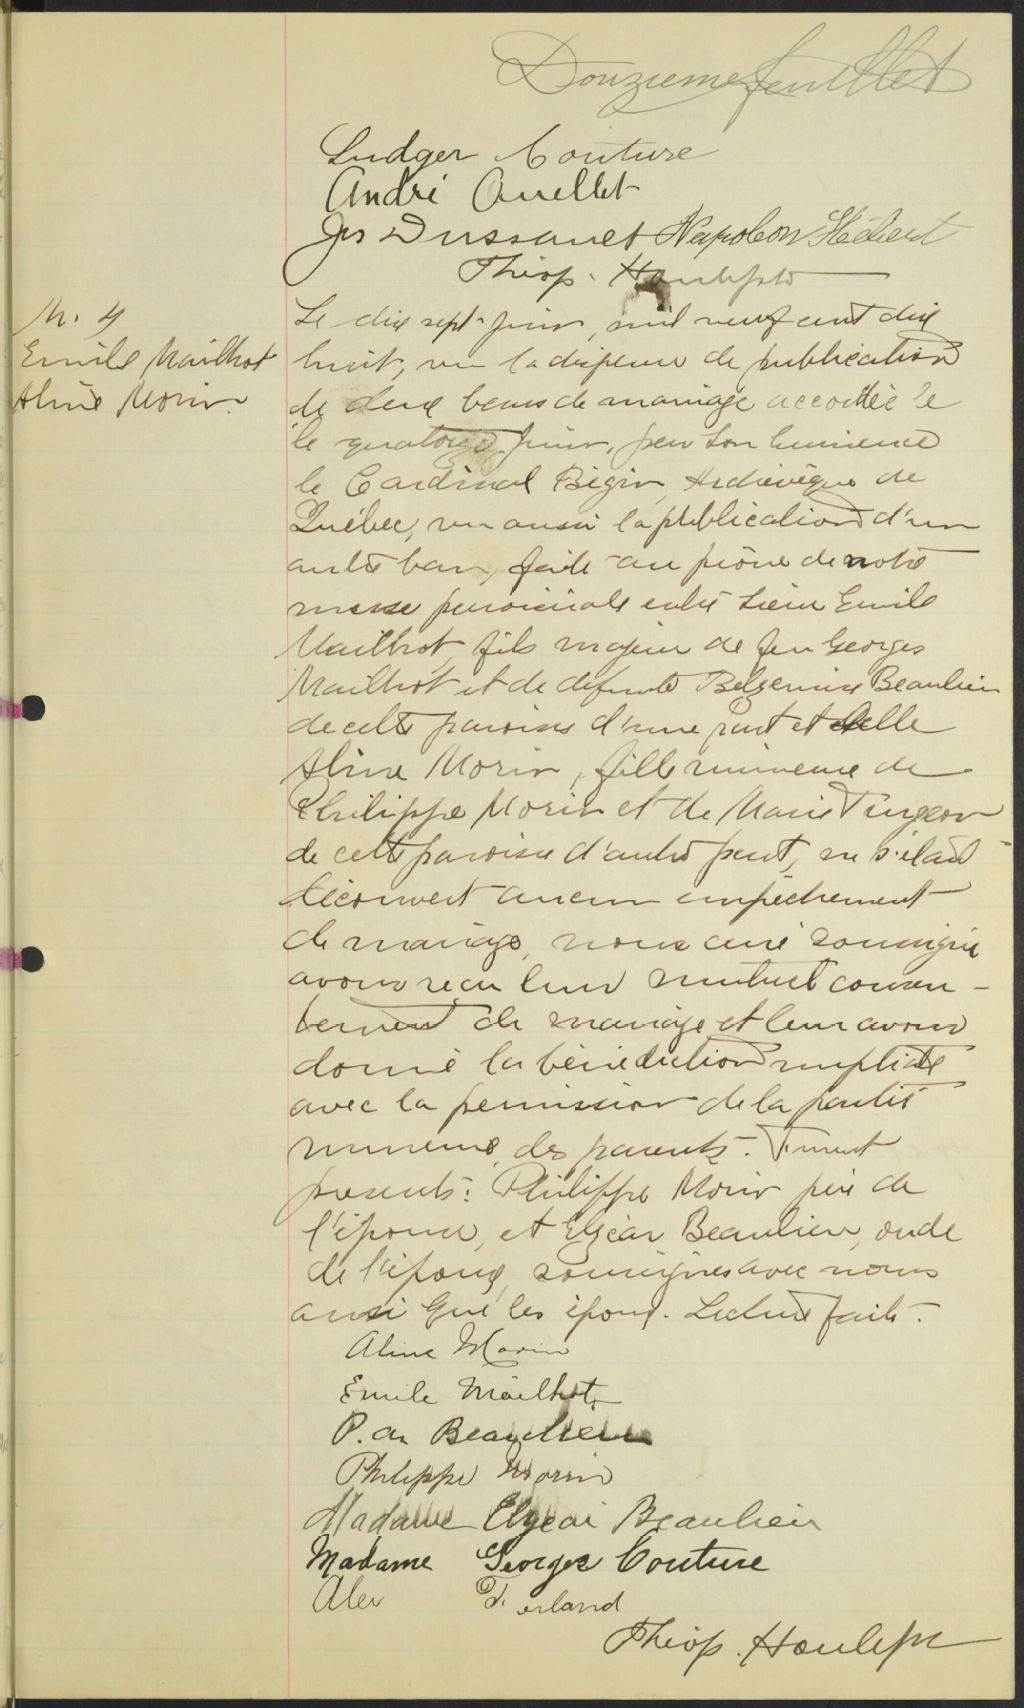 Douzieme feuillet
Ludger Couture
André Ouellet
Jos Dussault Napoléon Hébert
Théop. Houle ptr
M. 4
Emile Mailhot
Aline Morin.
Le dix sept juin, mil neuf cent dix
huit, vu la dispense de publication
de deux bans de mariage accordée le
le quatorze juin, par Son Eminence
le Cardinal Bégin, Archevêque de
Québec, vu aussi la publication d'un
autre ban, faite au prône de notre
messe paroissiale entre Sieur Emile
Mailhot, fils majeur de feu Georges
Mailhot et de defunte Beaulieu
de cette paroisse d'une part et Delle
Aline Morin, fille mineure de
Philippe Morin et de Marie Turgeon
de cette paroisse d'autre part, ne s'étant
découvert aucun empêchement
de mariage, nous curé soussigné
avons reçu leur mutuel consen-
tement de mariage et leur avons
donné la bénédiction nuptiale
avec la permission de la partie
mineure, des parents. Furent
présents: Philippe Morin père de
l'épouse, et Elzéar Beaulieu, oncle
de l'époux, soussignés avec nous
ainsi que les époux. Lecture faite.
Aline Morin
Emile Mailhot
P. a. Beaulieu
Philippe Morin
Madame Elzear Beaulieu
Madame Georges Couture
Alex Ferland
Théop. Houle ptr